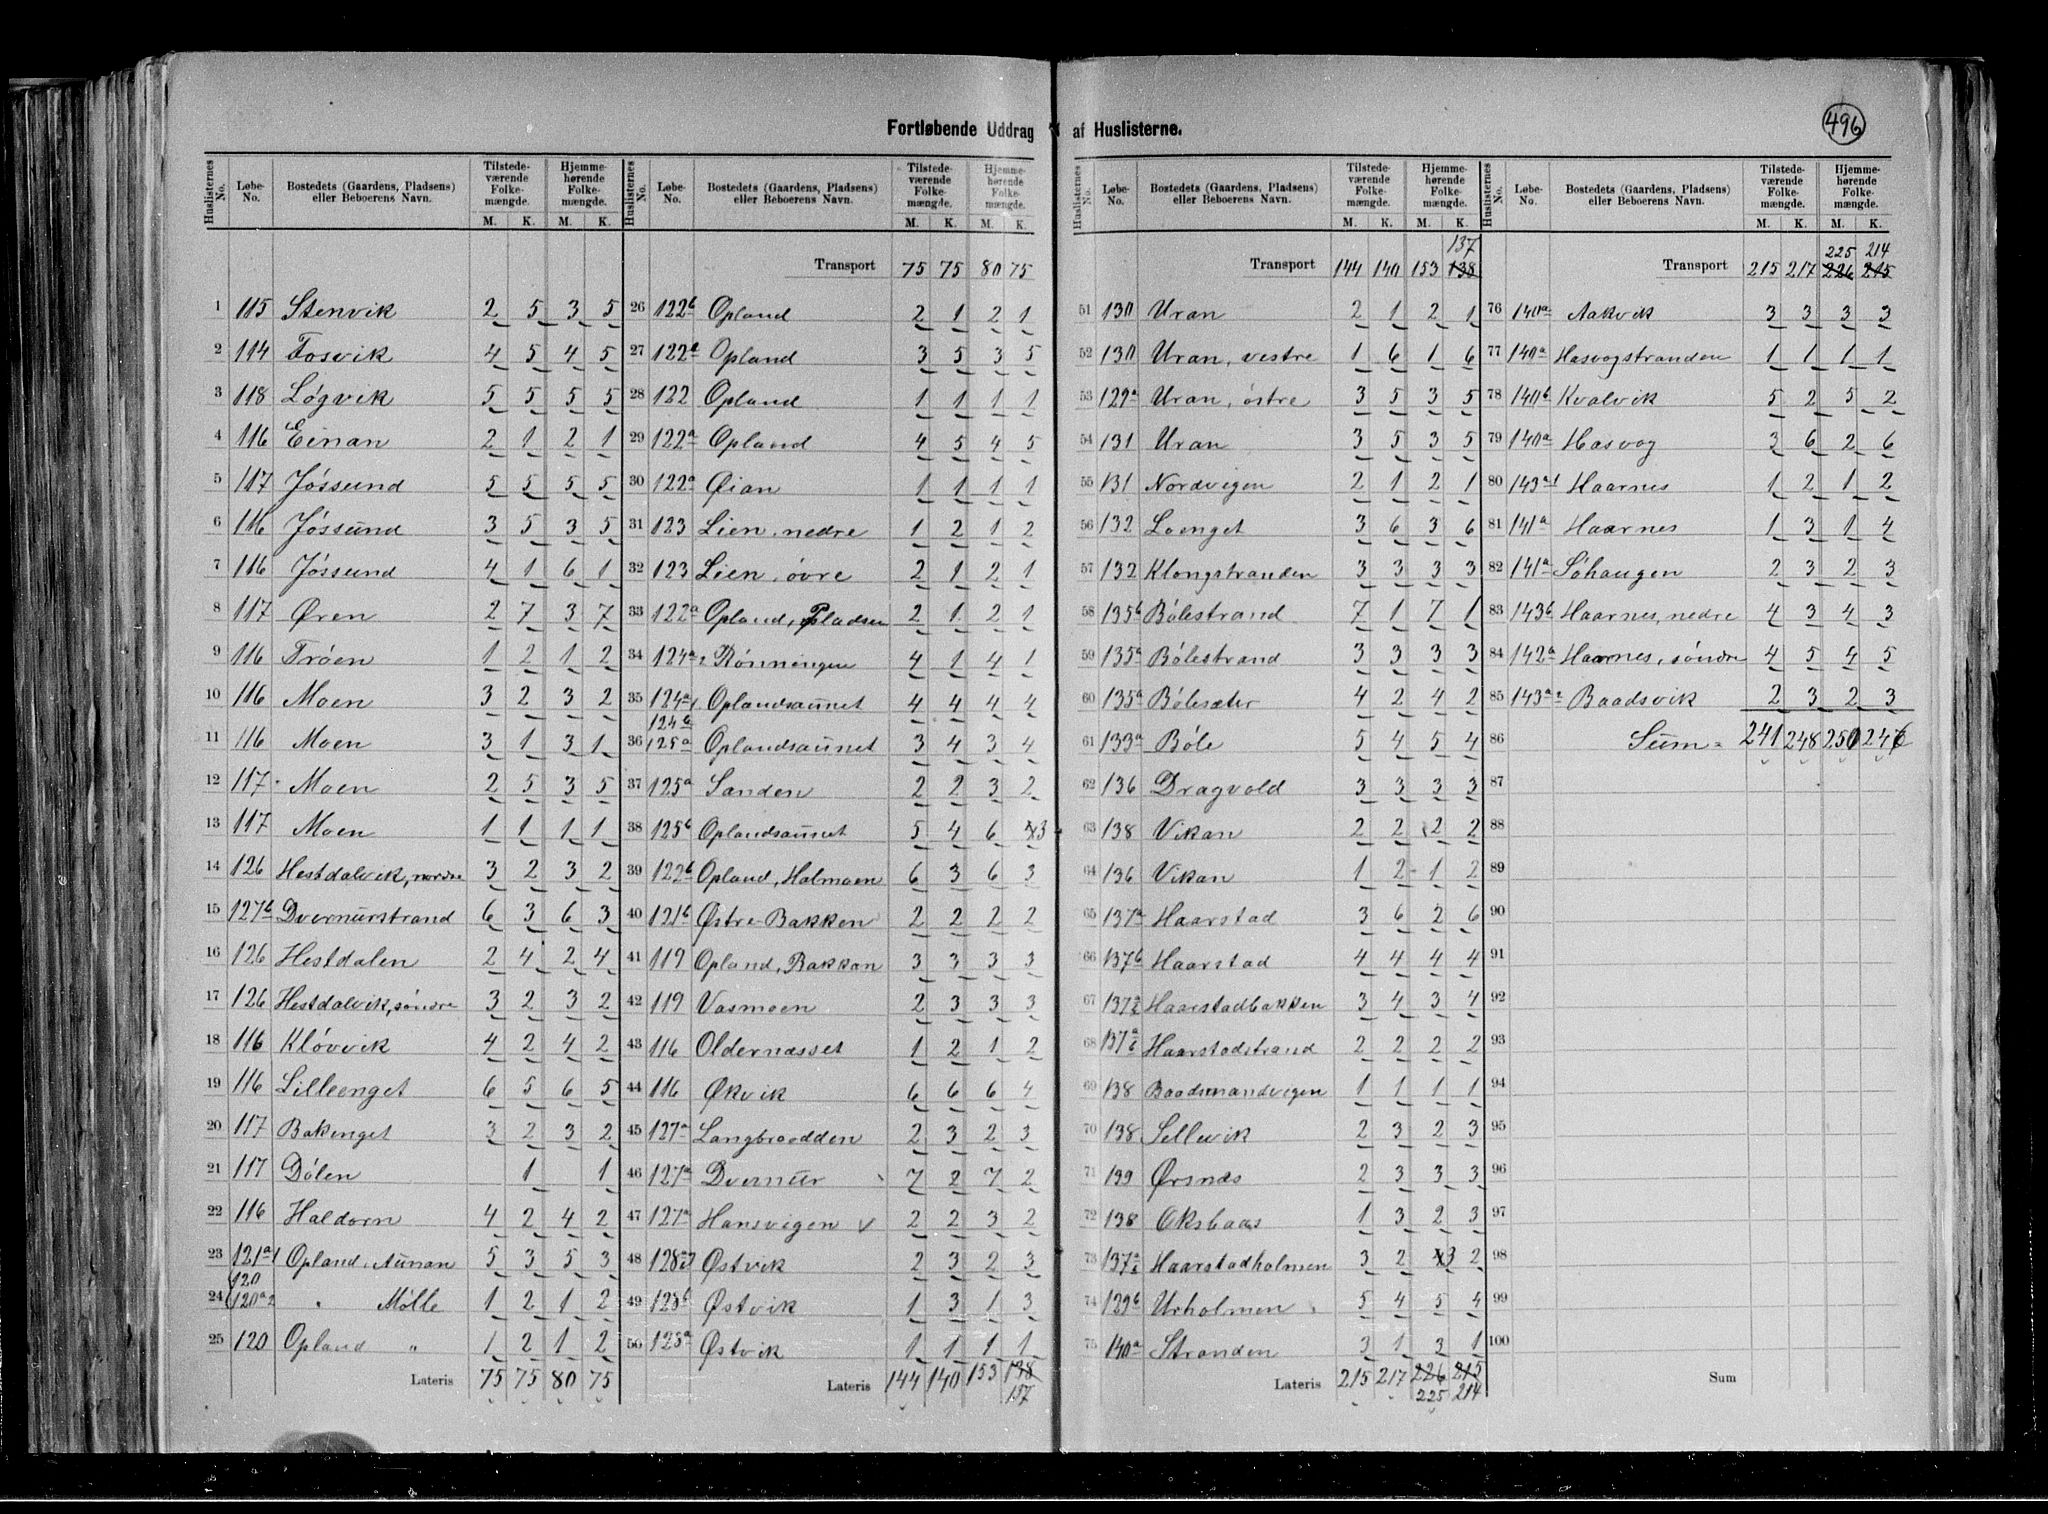 496
Fortløbende Uddrag af Huslisterne.
Huslisternes No. Løbe-No. Bostedets (Gaardens, Pladsens) eller Beboerens Navn. Tilstedeværende Folkemængde. M. K. Hjemmehørende Folkemængde. M. K.
1 115 Stenvik 2 5 3 5
2 114 Fosvik 4 5 4 5
3 118 Løgvik 5 5 5 5
4 116 Einan 2 1 2 1
5 117 Jøssund 5 5 5 5
6 116 Jøssund 3 5 3 5
7 116 Jøssund 4 1 6 1
8 117 Øren 2 7 3 7
9 116 Trøen 1 2 1 2
10 116 Moen 3 2 3 2
11 116 Moen 3 1 3 1
12 117 Moen 2 5 3 5
13 117 Moen 1 1 1 1
14 126 Hestdalvik, nordre 3 2 3 2
15 127b Dvernurstrand 6 3 6 3
16 126 Hestdalen 2 4 2 4
17 126 Hestdalvik, søndre 3 2 3 2
18 116 Kløvvik 4 2 4 2
19 116 Lilleenget 6 5 6 5
20 117 Bakenget 3 2 3 2
21 117 Dølen 1 1
22 116 Haldorn 4 2 4 2
23 121a1 Opland, Aunan 5 3 5 3
24 120 120a2 " Mølle 1 2 1 2
25 120 Opland " 1 2 1 2
Lateris 75 75 80 75
Huslisternes No. Løbe-No. Bostedets (Gaardens, Pladsens) eller Beboerens Navn. Tilstedeværende Folkemængde. M. K. Hjemmehørende Folkemængde. M. K.
Transport 75 75 80 75
26 122b Opland 2 1 2 1
27 122 Opland 3 5 3 5
28 122 Opland 1 1 1 1
29 122a Opland 4 5 4 5
30 122a Øian 1 1 1 1
31 123 Lien, nedre 1 2 1 2
32 123 Lien, øvre 2 1 2 1
33 122a Opland, Pladsen 2 1 2 1
34 124a2 Rønningen 4 1 4 1
35 124a1 Oplandsaunet 4 4 4 4
36 124b 125a Oplandsaunet 3 4 3 4
37 125a Sanden 2 2 3 2
38 125b Oplandsaunet 5 4 6 3
39 122b Opland, Halmoen 6 3 6 3
40 121b Østre Bakken 2 2 2 2
41 119 Opland, Bakkan 3 3 3 3
42 119 Vasmoen 2 3 3 3
43 116 Oldernæsset 1 2 1 2
44 116 Økvik 6 6 6 4
45 127a Langbraadden 2 3 2 3
46 127a Dvernur 7 2 7 2
47 127a Hansvigen v 2 2 3 2
48 128a Østvik 2 3 2 3
49 128b Østvik 1 3 1 3
50 128a Østvik 1 1 1 1
Lateris 144 140 153 138
137
Huslisternes No. Løbe-No. Bostedets (Gaardens, Pladsens) eller Beboerens Navn. Tilstedeværende Folkemængde. M. K. Hjemmehørende Folkemængde. M. K.
137
Transport 144 140 153 138
51 130 Uran 2 1 2 1
52 130 Uran, vestre 1 6 1 6
53 129a Uran, østre 3 5 3 5
54 131 Uran 3 5 3 5
55 131 Nordvigen 2 1 2 1
56 132 Loenget 3 6 3 6
57 132 Klongstranden 3 3 3 3
58 135b Bølestrand 7 1 7 1
59 135a Bølestrand 3 3 3 3
60 135a Bølesæter 4 2 4 2
61 133a Bøle 5 4 5 4
62 136 Dragvold 3 3 3 3
63 138 Vikan 2 2 2 2
64 136 Vikan 1 2 1 2
65 137a Haarstad 3 6 2 6
66 137b Haarstad 4 4 4 4
67 137a Haarstadbakken 3 4 3 4
68 137a Haarstadstrand 2 2 2 2
69 138 Baadsmandvigen 1 1 1 1
70 138 Sellevik 2 3 2 3
71 139 Ørsnæs 2 3 3 3
72 138 Oksbaas 1 3 2 3
73 137a Haarstadholmen 3 2 3 2
74 129b Urholmen 5 4 5 4
75 140a Stranden 3 1 3 1
Lateris 215 217 226 215
225 214
Huslisternes No. Løbe-No. Bostedets (Gaardens, Pladsens) eller Beboerens Navn. Tilstedeværende Folkemængde. M. K. Hjemmehørende Folkemængde. M. K.
225 214
Transport 215 217 226 215
76 140a Aakvik 3 3 3 3
77 140a Hasvogstranden 1 1 1 1
78 140b Kvalvik 5 2 5 2
79 140a Hasvog 3 6 2 6
80 143a1 Haarnes 1 2 1 2
81 141a Haarnes 1 3 1 4
82 141a Søhaugen 2 3 2 3
83 143b Haarnes, nedre 4 3 4 3
84 142a Haarnes, søndre 4 5 4 5
85 143a2 Baadsvik 2 3 2 3
86 Sum 241 248 250 246
87
88
89
90
91
92
93
94
95
96
97
98
99
100
Sum